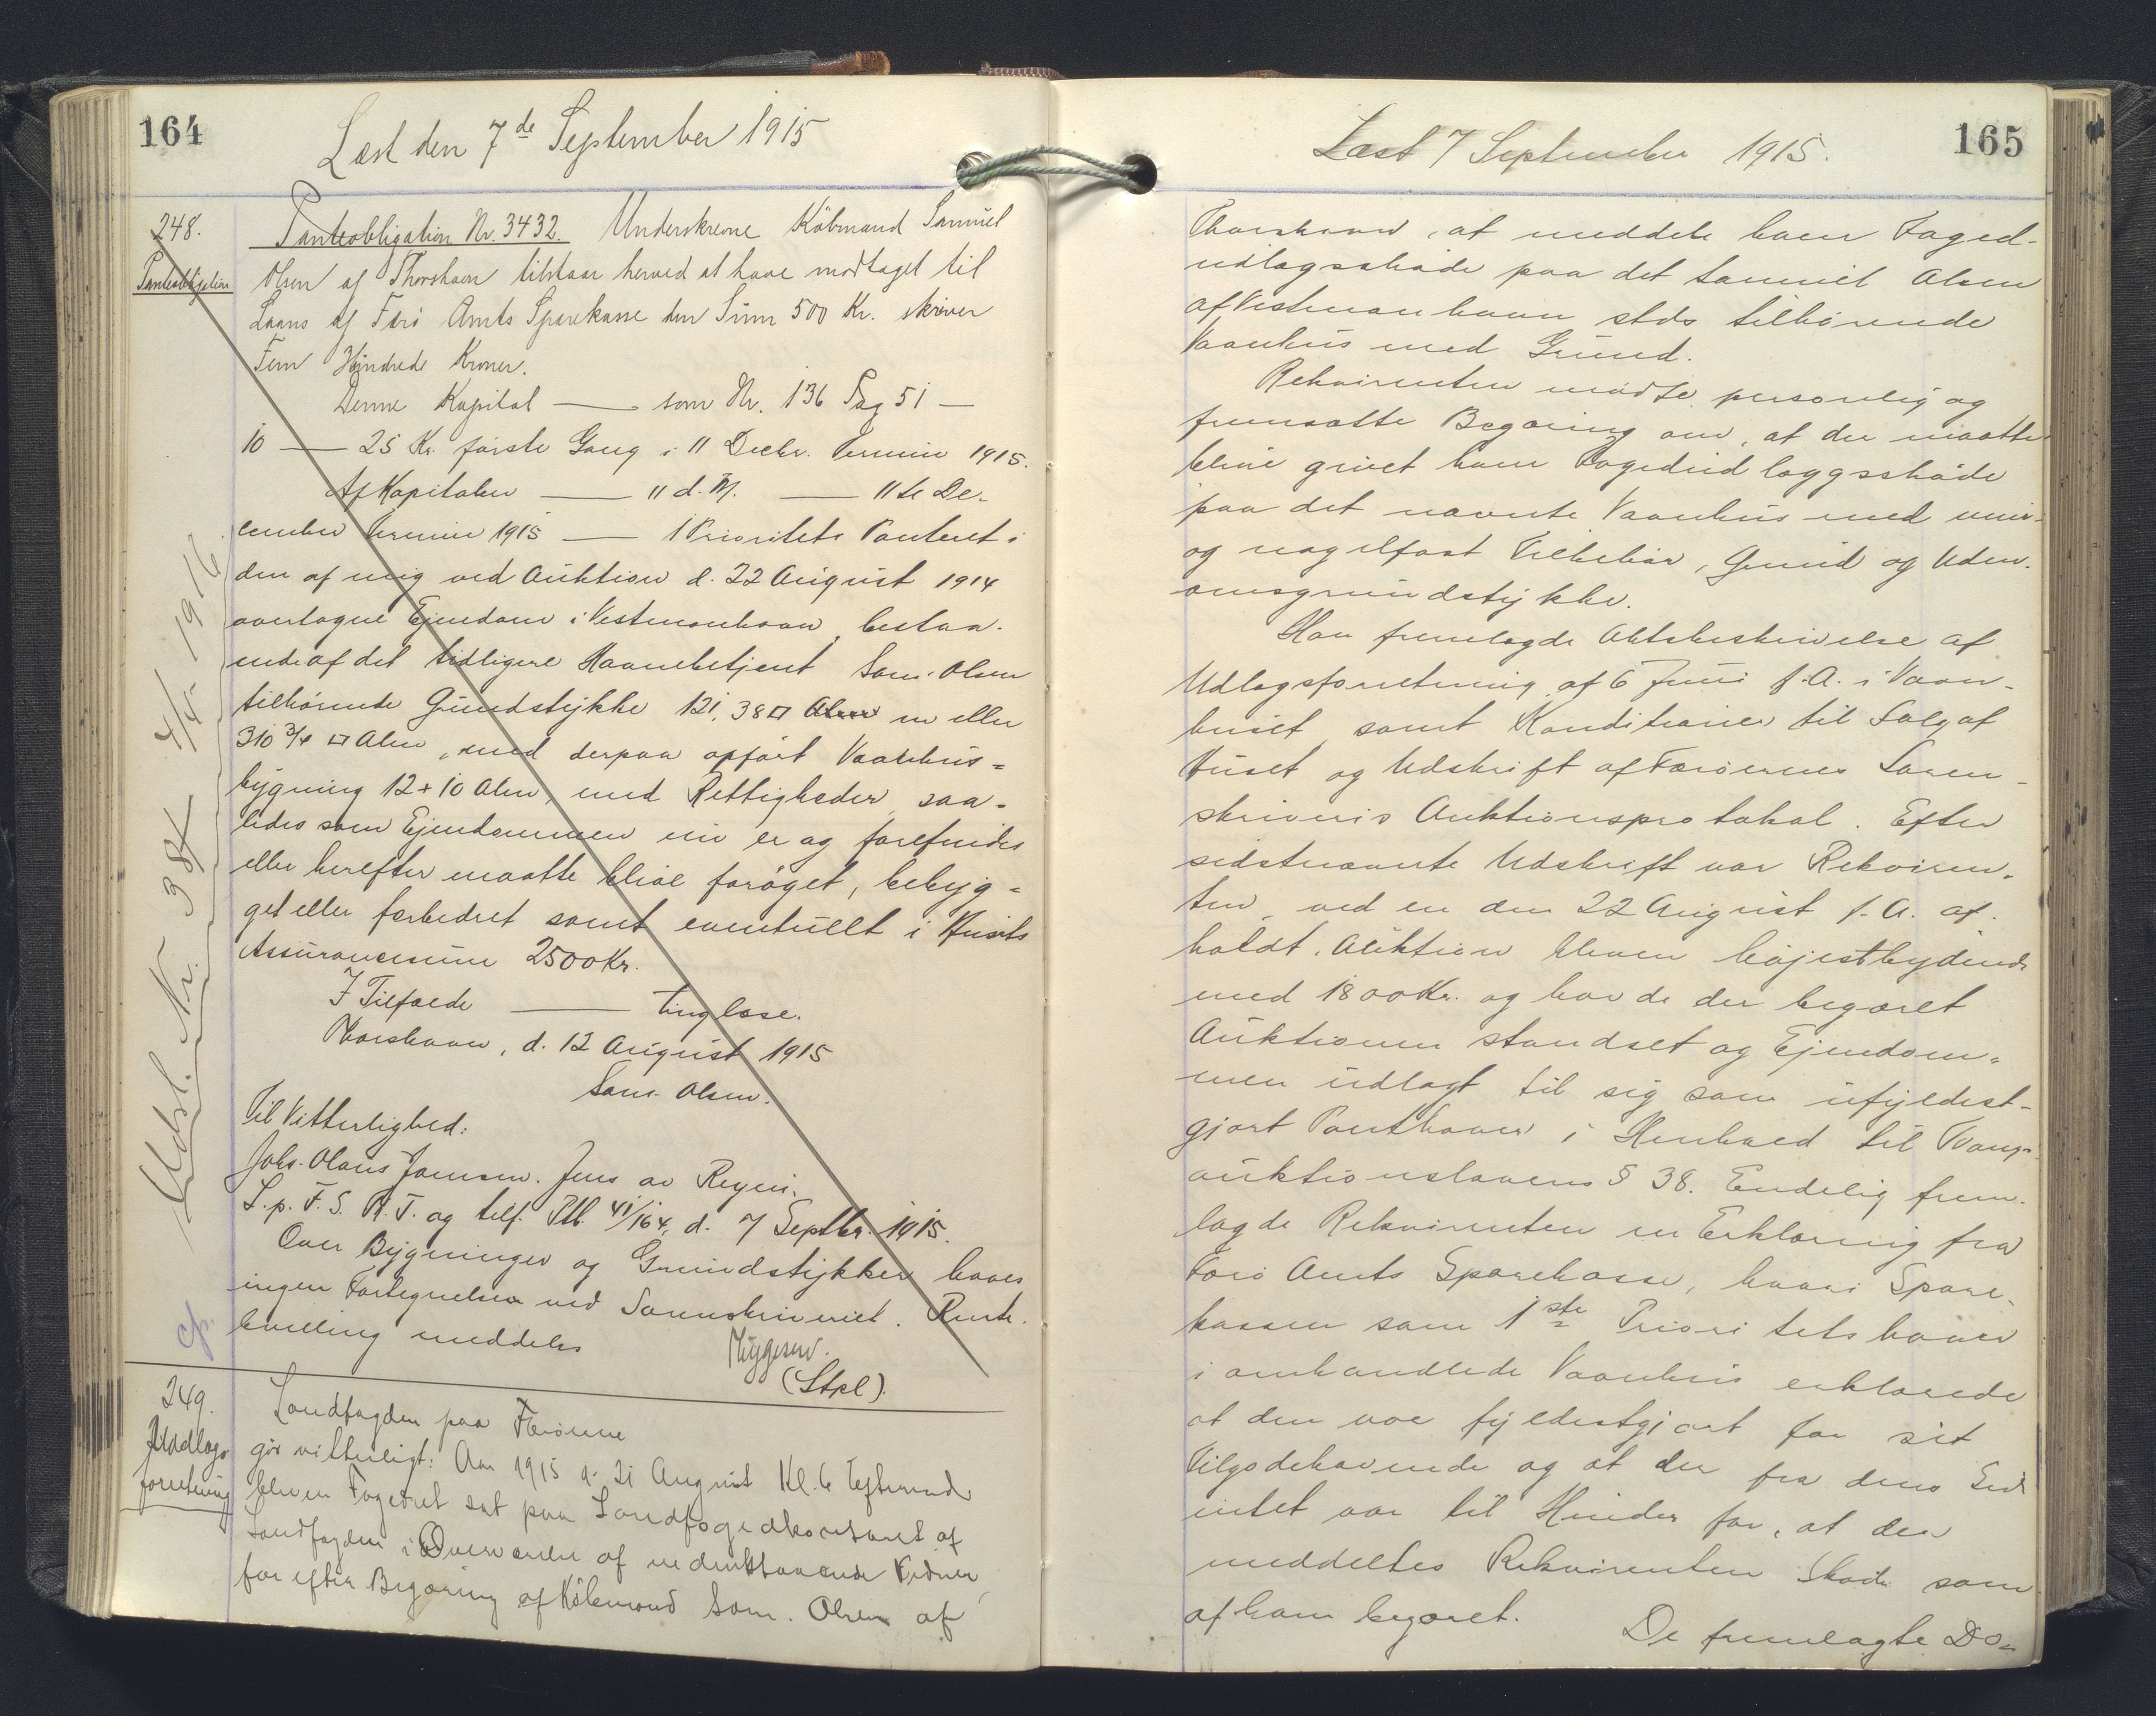 164
Læst den 7de September 1915
248.
Panteobligation
Panteobligation Nr. 3432. Underskrevne Købmand Samuel
Olsen af Thorshavn tilstaar herved at have modtaget til
Laans af Færø Amts Sparekasse den Sum 500 Kr. skriver
Fem Hundrede Kroner.
Denne Kapital — som Nr. 136 Pag 51 —
10 — 25 Kr. første Gang i 11 Decbr. Termin 1915.
Af Kapitalen — 11 d. M. — 11te De-
cember Termin 1915 — 1 Prioritets Panteret i
den af mig ved Auktion d. 22 August 1914
overtagne Ejendom i Vestmanhavn, bestaa-
ende af det tidligere Havnebetjent Sam. Olsen
tilhørende Grundstykke 121,38 □ Alen m eller
310 3/4 □ Alen, med derpaa opført Vaanhus-
bygning 12 + 10 Alen, med Rettigheder, saa-
ledes som Ejendommen nu er og forefindes
eller herefter maatte blive forøget, bebyg-
get eller forbedret samt eventuellt i Husets
Assurancesum 2500 Kr.
I Tilfælde — tinglæse.
Thorshavn, d. 12 August 1915
Sam. Olsen.
Til Vitterlighed:
Johs. Olavus Joensen. Jens av Reyni.
L. p. F. S. R. T. og tilf. Ptb. 41/164, d. 7 Septbr. 1915.
Over Bygninger og Grundstykker haves
ingen Fortegnelser ved Sorenskriveriet. Rente-
bevilling meddeles
Müggesen.
(Stpl).
Udsl. Nr. 38 4/4 1916
cf.
249.
Udlægs
forretning
Landfogden paa Færøerne
gør vitterligt: Aar 1915 d. 21 August Kl. 6 Eftermd
blev en Fogedret sat paa Landfogedkontoret af
Landfogden i Overværelse af nedenstaaende Vidner,
for efter Begæring af Købmand Sam. Olsen af
Læst 7 September 1915.
165
Thorshavn, at meddele ham Foged-
udlægsskøde paa det Samuel Olsen
af Vestmanhavn stds tilhørende
Vaanhus med Grund.
Rekvirenten mødte personlig og
fremsatte Begæring om, at der maatte
blive givet ham Fogedudlæggsskøde
paa det nævnte Vaanhus med mur-
og nagelfast Tilbehør, Grund og Uden-
omsgrundstykke.
Han fremlagde Aktsbeskrivelse af
Udlægsforretning af 6 Juni f. A. i Vaan-
huset, samt Konditioner til Salg af
Huset og Udskrift af Færøernes Soren-
skriveris Auktionsprotokol. Efter
sidstnævnte Udskrift var Rekviren-
ten, ved en den 22 August f. A. af-
holdt Auktion bleven højestbydende
med 1800 Kr. og havde der begæret
Auktionen standset og Ejendom-
men udlagt til sig som ufyldest-
gjort Panthaver i Henhold til Tvangs-
auktionslovens § 38. Endelig frem-
lagde Rekvirenten en Erklæring fra
Færø Amts Sparekasse, hvori Spare-
kassen som 1ste Prioritetshaver
i omhandlede Vaanhus erklærede
at den var fyldestgjort for sit
Tilgodehavende og at der fra dens Side
intet var til Hinder for, at der
meddeltes Rekvirenten Skøde som
af ham begæret.
De fremlagte Do-